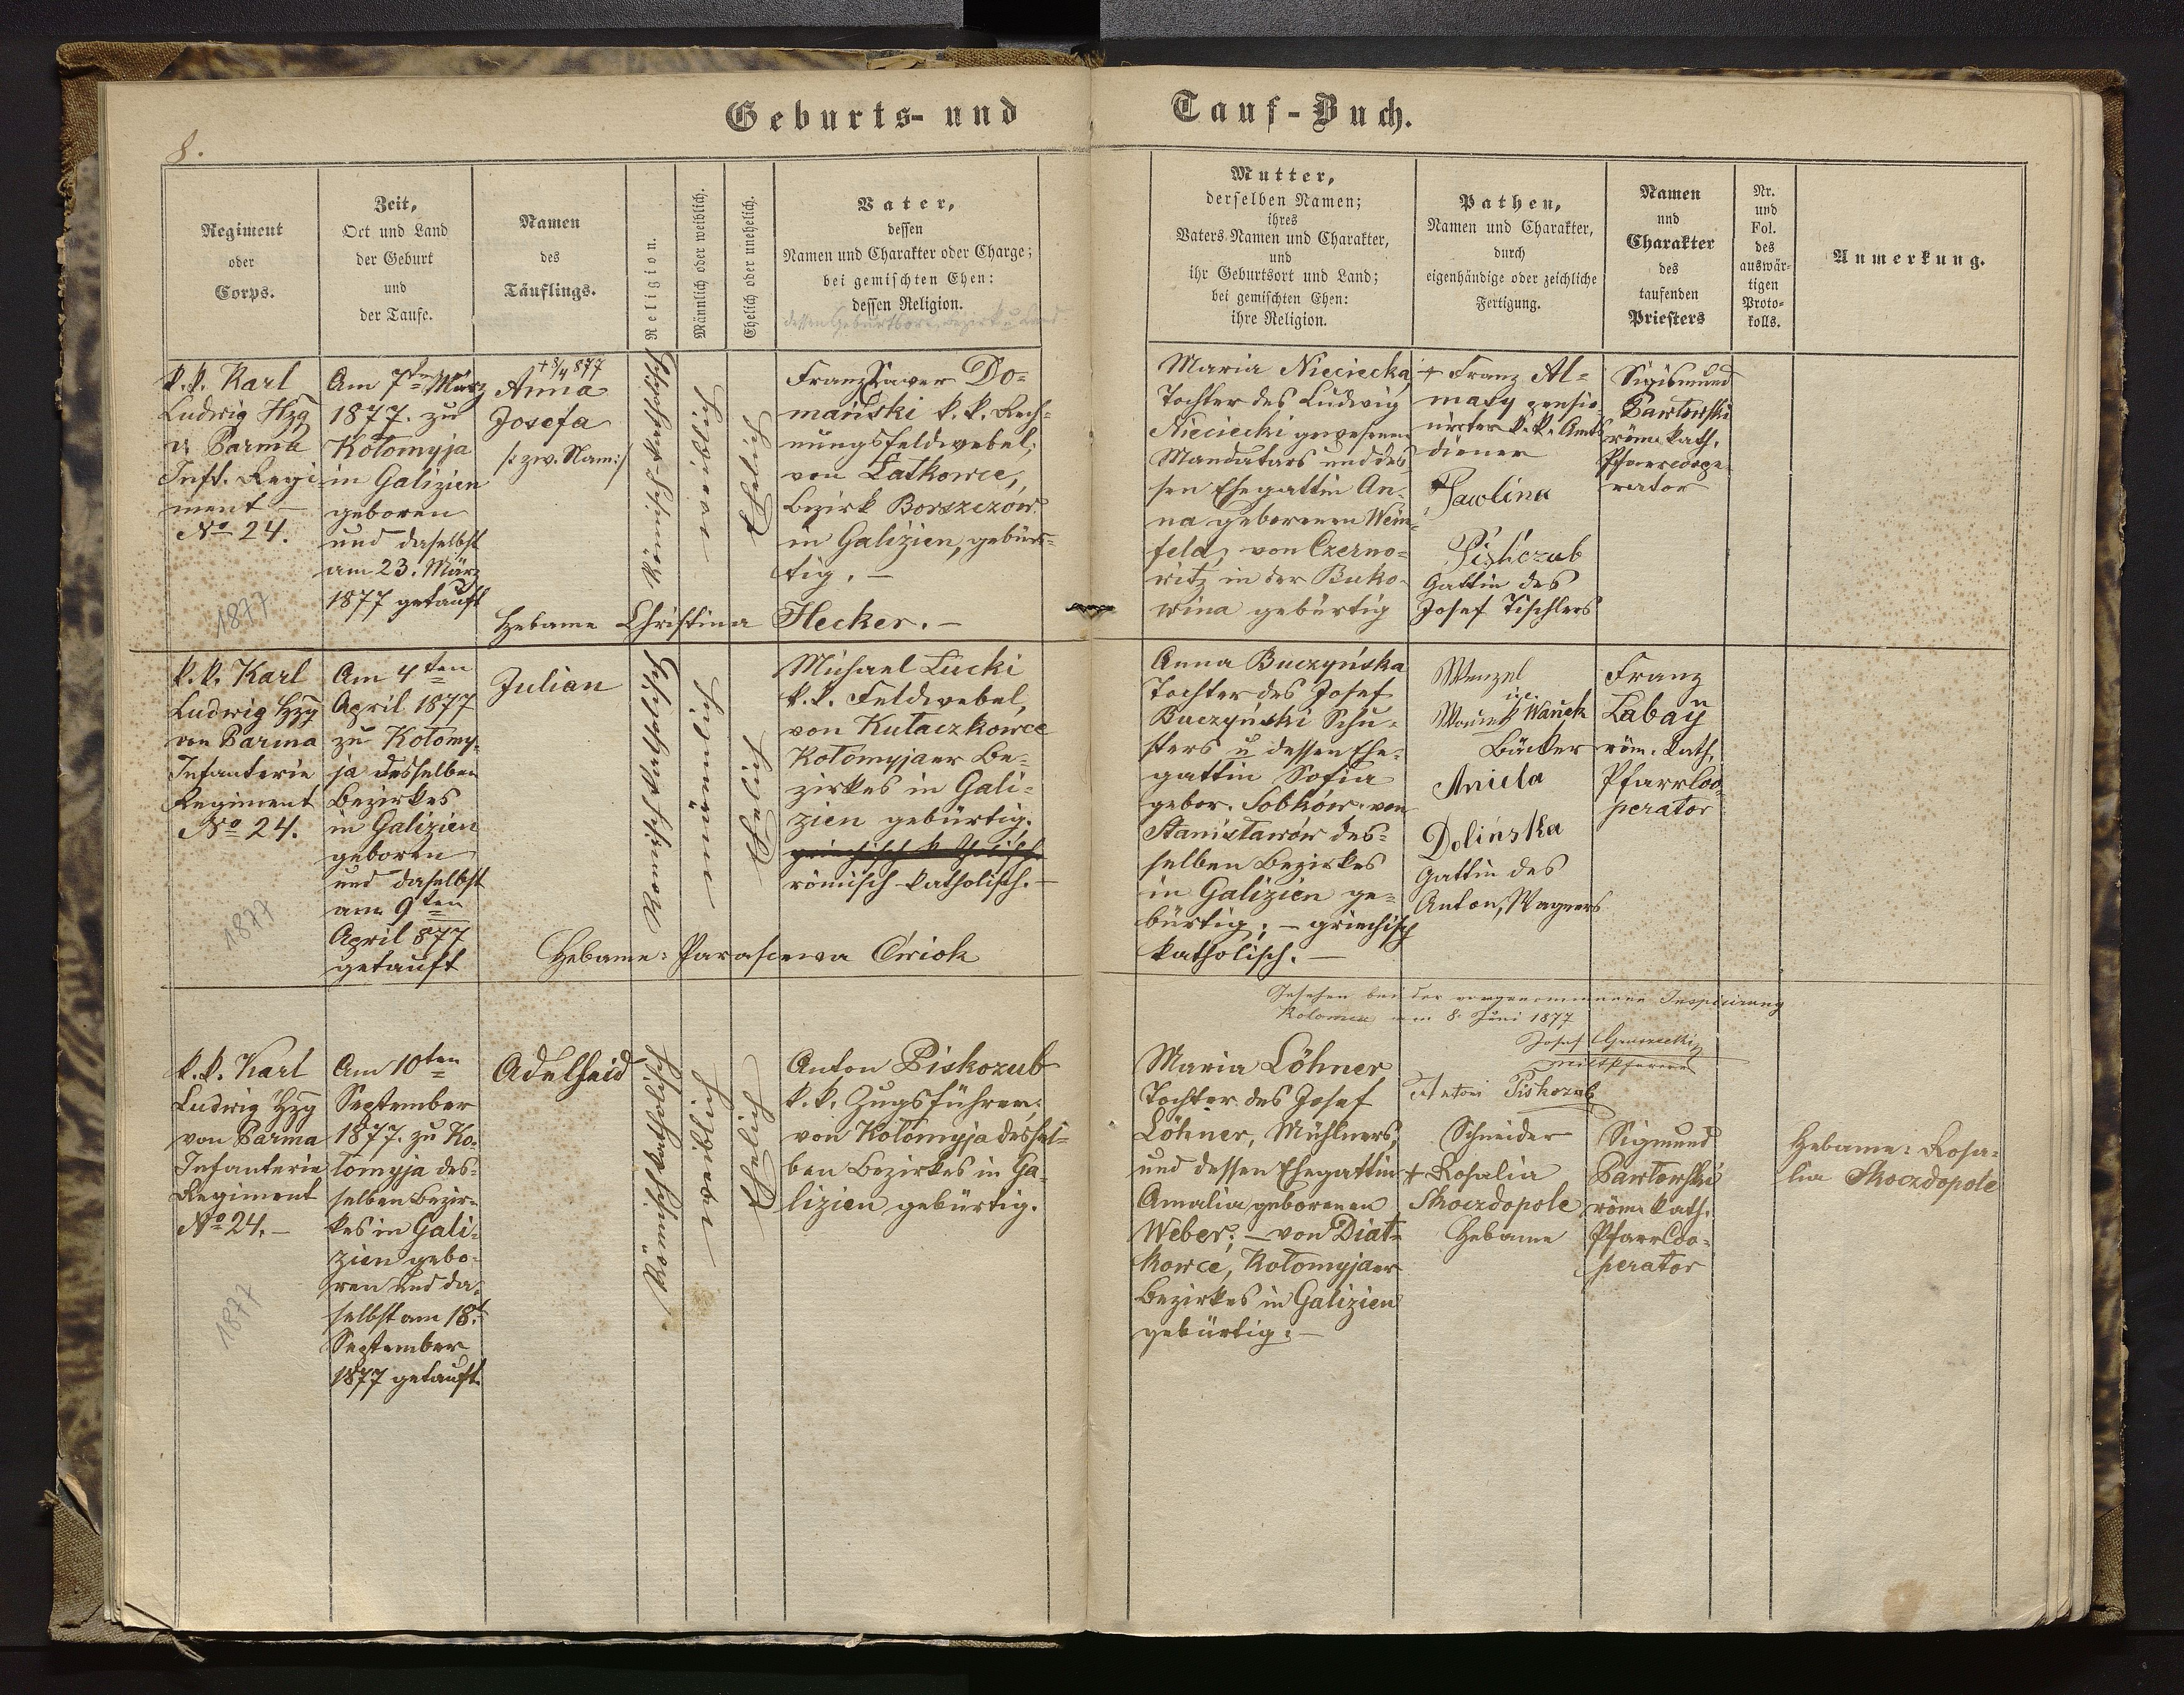 Geburts- und Tauf-Buch.
8.
Regiment
oder
Corps.
Zeit,
Ort und Land
der Geburt
und
der Taufe.
Namen
des
Täuflings.
Religion.
Männlich oder weiblich.
Ehelich oder unehelich.
Vater,
dessen
Namen und Charakter oder Charge;
bei gemischten Ehen:
dessen Religion.
dessen Geburtsort, Bezirk u. Land
Mutter,
derselben Namen;
ihres
Vaters Namen und Charakter,
und
ihr Geburtsort und Land;
bei gemischten Ehen:
ihre Religion.
Pathen,
Namen und Charakter,
durch
eigenhändige oder zeichliche
Fertigung.
Namen
und
Charakter
des
taufenden
Priesters
Nr.
und
Fol.
des
auswär-
tigen
Proto-
kolls.
Anmerkung.
k.k. Karl
Ludwig Hzg
v. Parma
Inft. Regi-
ment
No 24.
1877
Am 7ten März
1877. zu
Kołomyja
in Galizien
geboren
und daselbst
am 23. März
1877 getauft
+ 8/4 877
Anna
Josefa
/: zw. Nam:/
Römisch-katholisch
weiblich
Ehelich
Franz Xaver Do=
mański k.k. Rech=
nungsfeldwebel,
von Latkowce,
Bezirk Borszczów
in Galizien, gebür=
tig. —
Hebame Christina Hecker. —
Maria Nieciecka,
Tochter des Ludwig
Nieciecki gewesenen
Mandatars und des=
sen Ehegattin An=
na geborenen Wein=
feld, von Czerno=
witz in der Buko=
wina gebürtig
+ Franz Al=
masy pensio=
nirter k.k. Amts
diener
Pawlina
Piskozub
Gattin des
Josef Tischlers
Sigismund
Pawłowski
röm. kath.
Pfarrcoope
rator
k.k. Karl
Ludwig Hzg
von Parma
Infanterie
Regiment
No 24.
1877
Am 4ten
April 1877
zu Kołomy=
ja desselben
Bezirkes
in Galizien
geboren
und daselbst
am 9ten
April 877
getauft
Julian
Römisch-katholisch
männlich
Ehelich
Michael Łucki
k.k. Feldwebel,
von Kułaczkowce
Kołomyjaer Be=
zirkes in Gali=
zien gebürtig.
griechisch katholisch.
römisch-katholisch. —
Hebame: Parascewa Ćwiok
Anna Buczyńska
Tochter des Josef
Buczyński Schu=
sters u dessen Ehe=
gattin Sofia
gebor. Sobków von
Stanisławów des=
selben Bezirkes
in Galizien ge=
bürtig; — griechisch
katholisch. —
Wenzel
Wanek
Bäcker
Aniela
Dolińska
Gattin des
Anton, Wagners
Franz
Labaÿ
röm. kath.
Pfarrcoo=
perator
Gesehen bei der vorgenommenen Inspicirung
Kolomea am 8. Juni 1877
Josef
k.k. Karl
Ludwig Hzg
von Parma
Infanterie
Regiment
No 24. —
1877
Am 10ten
September
1877. zu Ko=
łomyja des=
selben Bezir=
kes in Gali=
zien gebo=
ren und da=
selbst am 18t
September
1877 getauft.
Adelhaid
Römisch-katholisch
weiblich
Ehelich
Anton Piskozub
k.k. Zugsführer,
von Kołomyja dessel=
ben Bezirkes in Ga=
lizien gebürtig.
Maria Löhner
Tochter des Josef
Löhner, Mühlners,
und dessen Ehegattin
Amalia geborenen
Weber; — von Diat=
kowce, Kołomyjaer
Bezirkes in Galizien
gebürtig. —
Antoni Piskozub
Schneider
+ Rosalia
Skoczdopole
Hebame
Sigmund
Pawłowski
röm. kath.
Pfarrcoo=
perator
Hebame: Rosa=
lia Skoczdopole